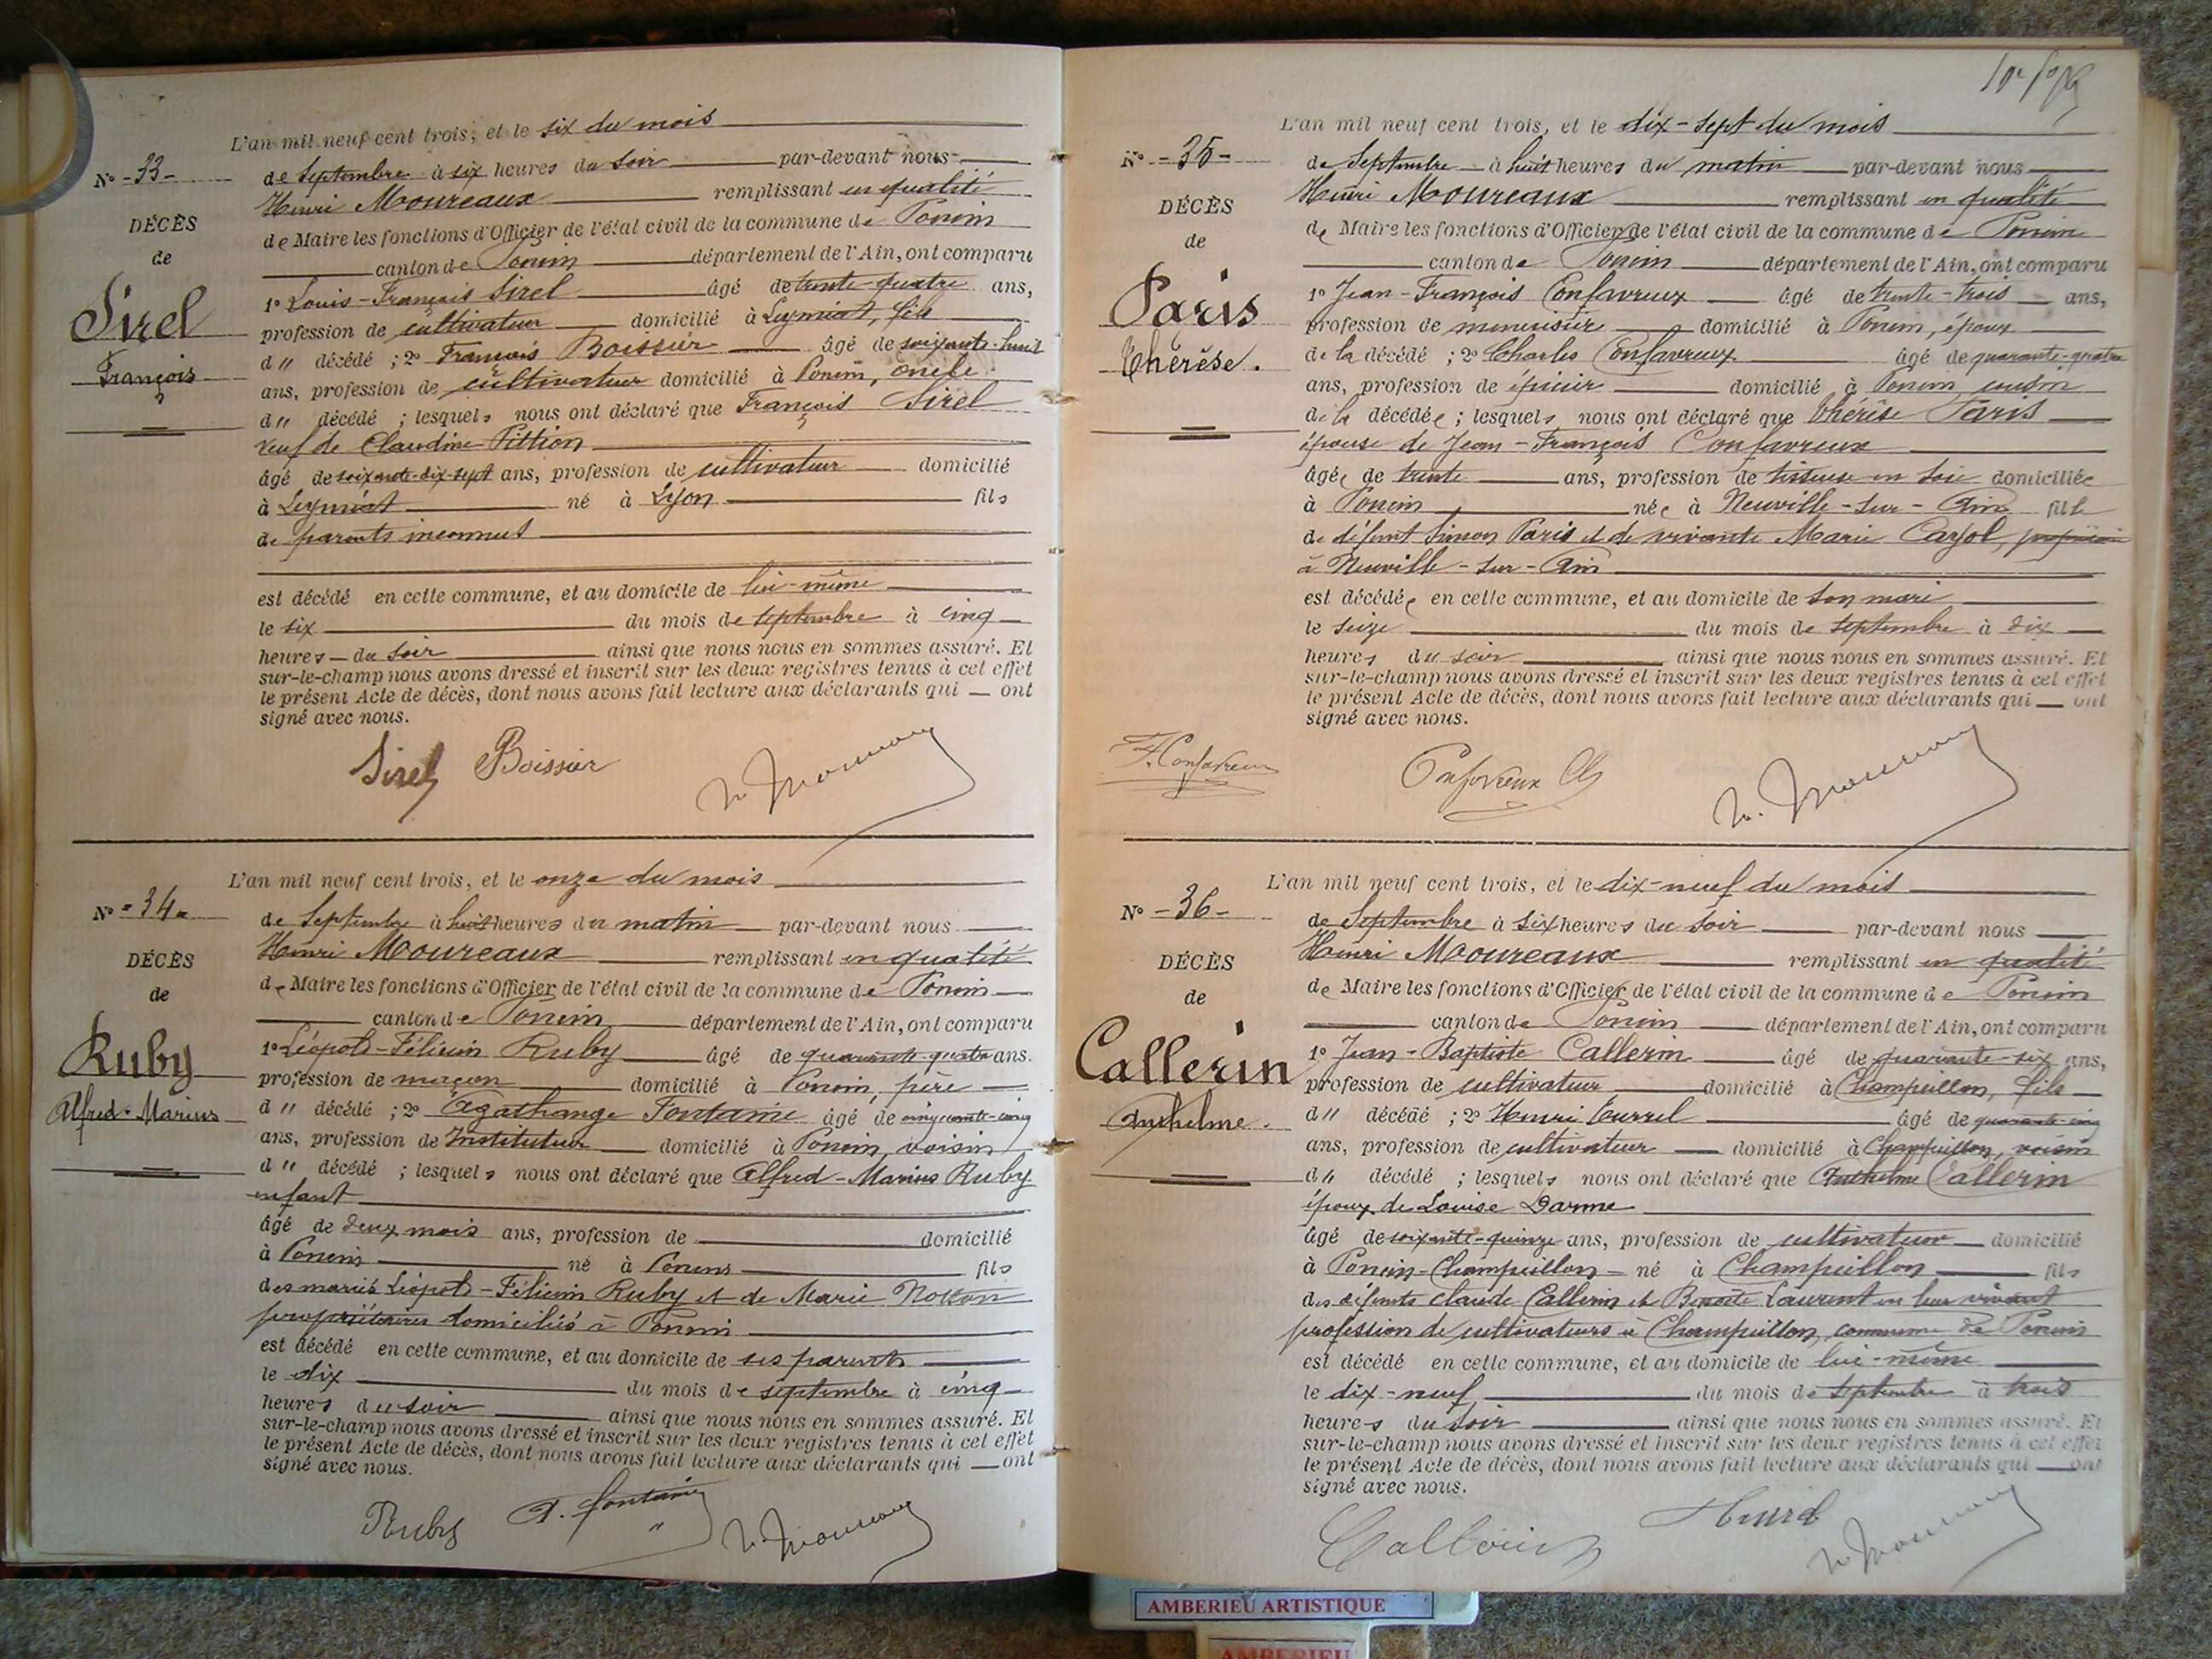 L'an mil neuf cent trois, et le six du mois
N° - 33 -
de Septembre à six heures du soir par-devant nous
Henri Moureaux remplissant en qualité
DÉCÈS
de Maire les fonctions d'Officier de l'état civil de la commune de Poncin
de
canton de Poncin département de l'Ain, ont comparu
1° Louis-François Sirel âgé de trente-quatre ans,
Sirel
profession de cultivateur domicilié à Leymiat, fils
d u décédé ; 2° François Boissier âgé de soixante-huit
François
ans, profession de cultivateur domicilié à Poncin, oncle
d u décédé ; lesquels nous ont déclaré que François Sirel
veuf de Claudine Pittion
âgé de soixante-dix-sept ans, profession de cultivateur domicilié
à Leymiat né à Lyon fils
de parents inconnus
est décédé en cette commune, et au domicile de lui-même
le six du mois de septembre à cinq
heures du soir ainsi que nous nous en sommes assuré. Et
sur-le-champ nous avons dressé et inscrit sur les deux registres tenus à cet effet
le présent Acte de décès, dont nous avons fait lecture aux déclarants qui ont
signé avec nous.
Sirel Boissier
L'an mil neuf cent trois, et le onze du mois
N° - 34 -
de Septembre à huit heures du matin par-devant nous
Henri Moureaux remplissant en qualité
DÉCÈS
de Maire les fonctions d'Officier de l'état civil de la commune de Poncin
de
canton de Poncin département de l'Ain, ont comparu
1° Léopold-Félicien Ruby âgé de quarante-quatre ans.
Ruby
profession de maçon domicilié à Poncin, père
Alfred-Marius
d u décédé ; 2° Agathange Fontaine âgé de cinquante-cinq
ans, profession de Instituteur domicilié à Poncin, voisin
d u décédé ; lesquels nous ont déclaré que Alfred-Marius Ruby
enfant
âgé de deux mois ans, profession de domicilié
à Poncin né à Poncin fils
des mariés Léopold-Félicien Ruby et de Marie
propriétaires domiciliés à Poncin
est décédé en cette commune, et au domicile de ses parents
le dix du mois de septembre à cinq
heures du soir ainsi que nous nous en sommes assuré. Et
sur-le-champ nous avons dressé et inscrit sur les deux registres tenus à cet effet
le présent Acte de décès, dont nous avons fait lecture aux déclarants qui ont
signé avec nous.
Ruby A. Fontaine
L'an mil neuf cent trois, et le dix-sept du mois
N° - 35 -
de Septembre à huit heures du matin par-devant nous
Henri Moureaux remplissant en qualité
DÉCÈS
de Maire les fonctions d'Officier de l'état civil de la commune de Poncin
de
canton de Poncin département de l'Ain, ont comparu
1° Jean-François Confavreux âgé de trente-trois ans,
Paris
profession de menuisier domicilié à Poncin, époux
de la décédé ; 2° Charles Confavreux âgé de quarante-quatre
Thérèse.
ans, profession de épicier domicilié à Poncin cousin
de la décédée ; lesquels nous ont déclaré que Thérèse Paris
épouse de Jean-François Confavreux
âgée de trente ans, profession de tisseuse en soie domiciliée
à Poncin née à Neuville-sur-Ain fille
de défunt Simon Paris et de vivante Marie
à Neuville-sur-Ain
est décédée en cette commune, et au domicile de son mari
le seize du mois de septembre à dix
heures du soir ainsi que nous nous en sommes assuré. Et
sur-le-champ nous avons dressé et inscrit sur les deux registres tenus à cet effet
le présent Acte de décès, dont nous avons fait lecture aux déclarants qui ont
signé avec nous.
F. Confavreux Confavreux Ch
L'an mil neuf cent trois, et le dix-neuf du mois
N° - 36 -
de Septembre à six heures du soir par-devant nous
Henri Moureaux remplissant en qualité
DÉCÈS
de Maire les fonctions d'Officier de l'état civil de la commune de Poncin
de
canton de Poncin département de l'Ain, ont comparu
1° Jean-Baptiste Callerin âgé de quarante-six ans,
Callerin
profession de cultivateur domicilié à Champeillon, fils
Anthelme.
d u décédé ; 2° Henri âgé de quarante-cinq
ans, profession de cultivateur domicilié à Champeillon, voisin
d u décédé ; lesquels nous ont déclaré que Anthelme Callerin
époux de Louise Darme
âgé de soixante-quinze ans, profession de cultivateur domicilié
à Poncin-Champeillon né à Champeillon fils
des défunts Claude Callerin et Benoite Laurent en leur vivant
profession de cultivateurs à Champeillon, commune de Poncin
est décédé en cette commune, et au domicile de lui-même
le dix-neuf du mois de septembre à trois
heures du soir ainsi que nous nous en sommes assuré. Et
sur-le-champ nous avons dressé et inscrit sur les deux registres tenus à cet effet
le présent Acte de décès, dont nous avons fait lecture aux déclarants qui ont
signé avec nous.
Callerin
AMBERIEU ARTISTIQUE
AMBERIEU